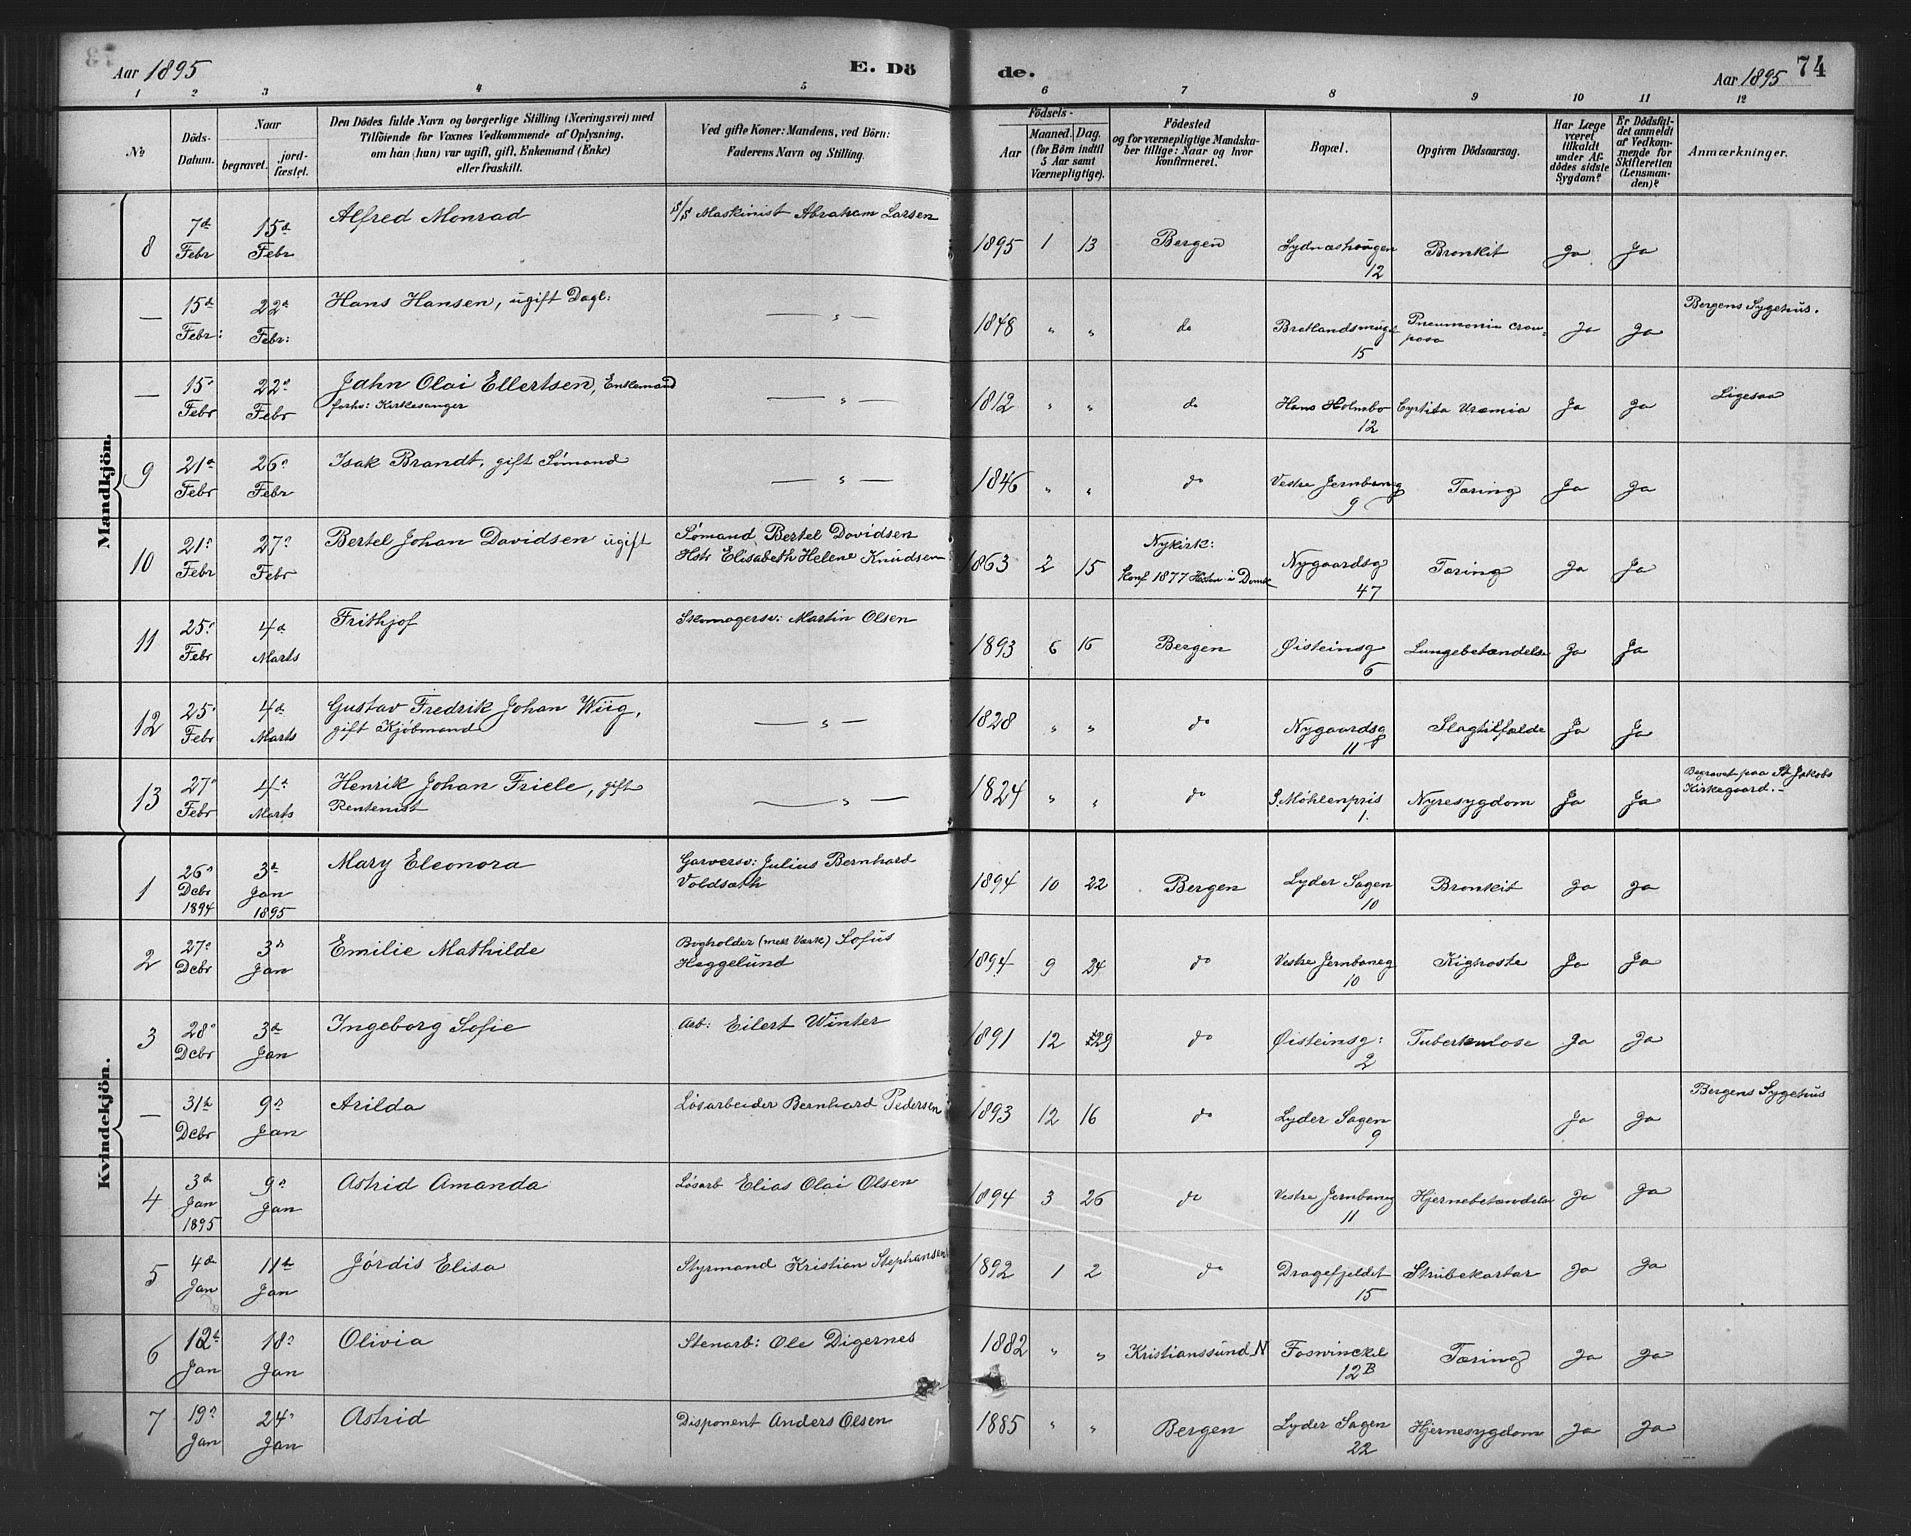 Aar 1895 E. Dö de. Aar 1895 74
1 2 3 4 5 6 7 8 9 10 11 12
No Döds-Datum. Naar begravet. jordfæstet. Den Dödes fulde Navn og borgerlige Stilling (Næringsvei) med Tilföiende for Voxnes Vedkommende af Oplysning, om han (hun) var ugift, gift, Enkemand (Enke) eller fraskilt. Ved gifte Koner: Mandens, ved Börn: Faderens Navn og Stilling. Födsels- Aar Maaned. Dag. (for Börn indtil 5 Aar samt Værnepligtige). Födested og for værnepligtige Mandskaber tillige: Naar og hvor konfirmeret. Bopæl. Opgiven Dödsaarsag. Har Læge været tilkaldt under Afdödes sidste Sygdom? Er Dödsfaldet anmeldt af Vedkommende for Skifteretten (Lensmanden)? Anmærkninger.
Mandkjön.
8 7de Febr 15de Febr Alfred Monrad S/S Maskinist Abraham Larsen 1895 1 13 Bergen Sydnæshaugen 12 Bronkit Ja Ja
— 15de Febr: 22de Febr: Hans Hansen, ugift Dagl: — " — 1848 " " do Bratlandsmuget 15 Pneumonia crouposa Ja Ja Bergens Sygehus.
— 15de Febr 22de Febr Jahn Olai Ellertsen, Enkemand forhv: Kirkesanger — " — 1812 " " do Hans Holmbo 12 Cystita Uræmia Ja Ja Ligesaa
9 21de Febr 26de Febr Isak Brandt, gift Sømand — " — 1846 " " do Vestre Jernbaneg 9 Tæring Ja Ja
10 21de Febr 27de Febr Bertel Johan Davidsen ugift Sømand Bertel Davidsen Hstr Elisabeth Helene Knudsen 1863 2 15 Nykirk: Konf 1877 Høsten i Domk Nygaardsg 47 Tæring Ja Ja
11 25de Febr 4de Marts Frithjof Skomagersv: Martin Olsen 1893 6 16 Bergen Øisteinsg 6 Lungebetændelse Ja Ja
12 25de Febr 4de Marts Gustav Fredrik Johan Wiig, gift Kjøbmand — " — 1828 " " do Nygaardsg 11 Slagtilfælde Ja Ja
13 27de Febr 4de Marts Henrik Johan Friele, gift Rentenist — " — 1824 " " do S. Møhlenpris 1. Nyresygdom Ja Ja Begravet paa St Jakobs Kirkegaard.-
Kvindekjön.
1 26de Dcbr 1894 3de Jan 1895 Mary Eleonora Garversv: Julius Bernhard Voldsæth 1894 10 22 Bergen Lyder Sagen 10 Bronkit Ja Ja
2 27de Dcbr 3de Jan Emilie Mathilde Bogholder (mek Værk) Sofus Heggelund 1894 9 24 do Vestre Jernbaneg 10 Kighoste Ja Ja
3 28de Dcbr 3de Jan Ingeborg Sofie Arb: Eilert Winter 1891 12 29 do Øisteinsg: 2 Tuberkulose Ja Ja
— 31de Dcbr 9de Jan Arilda Løsarbeider Bernhard Pedersen 1893 12 16 do Lyder Sagen 9 Ja Ja Bergens Sygehus
4 3de Jan 1895 9de Jan Astrid Amanda Løsarb Elias Olai Olsen 1894 3 26 do Vestre Jernbaneg 11 Hjernebetændelse Ja Ja
5 4de Jan 11de Jan Jørdis Elisa Styrmand Kristian Stephansen 1892 1 2 do Dragefjeldet 15 Strubekatar Ja Ja
6 12te Jan 18de Jan Olivia Stenarb: Ole Digernes 1882 " " Kristianssund N Fosvinckel 12B Tæring Ja Ja
7 19de Jan 24de Jan Astrid Disponent Anders Olsen 1885 " " Bergen Lyder Sagen 22 Hjernesygdom Ja Ja